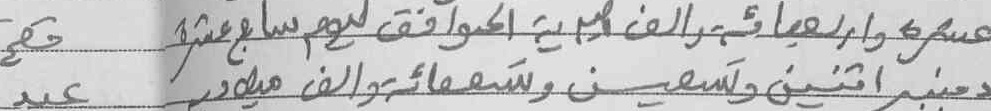 عشرة وأربعمائة وألف هجرية الموافق ليوم سابع عشر
دجنبر اثنين وتسعين وتسعمائة وألف ميلادية عبد